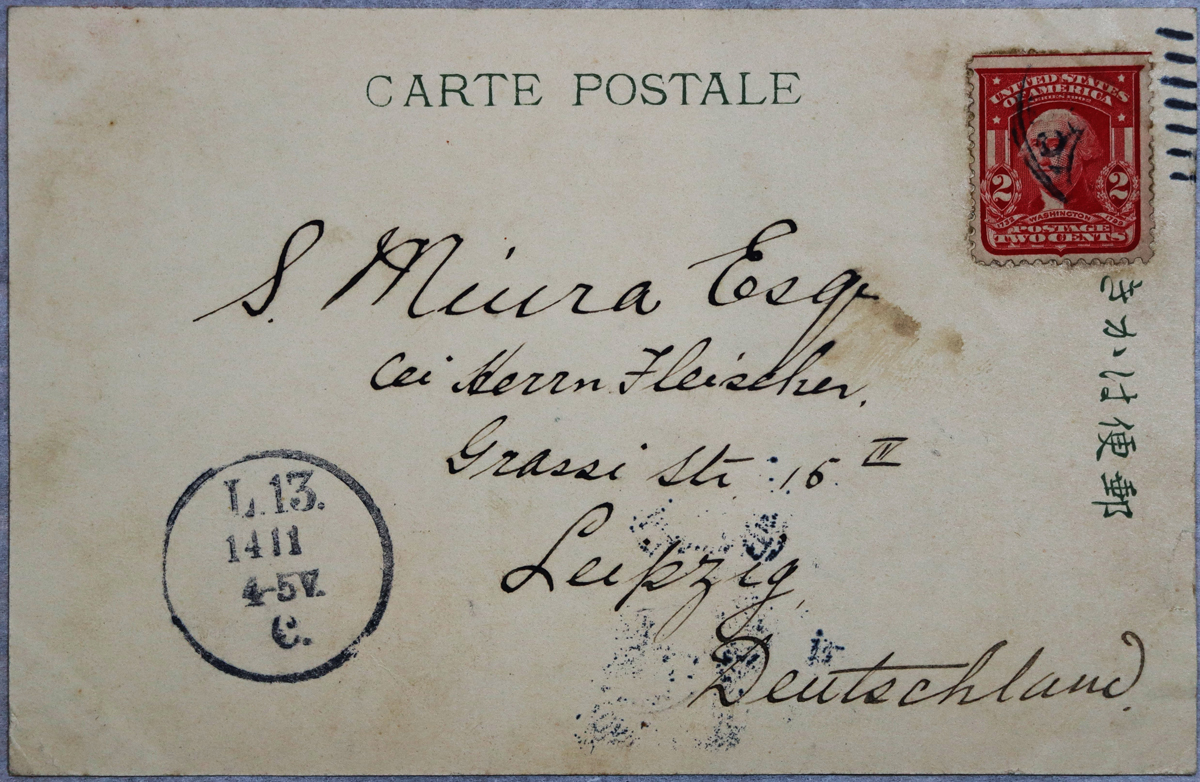 CARTE POSTALE
UNITED STATES
OF AMERICA
SERIES 1902
2 2
1732 WASHINGTON 1799
POSTAGE
TWO CENTS
郵便はかき
S. Miura Esq
bei Herrn Fleischer,
Grassi Str. 15 IV
Leipzig,
Deutschland.
L. 13.
14 11
4-5V.
C.